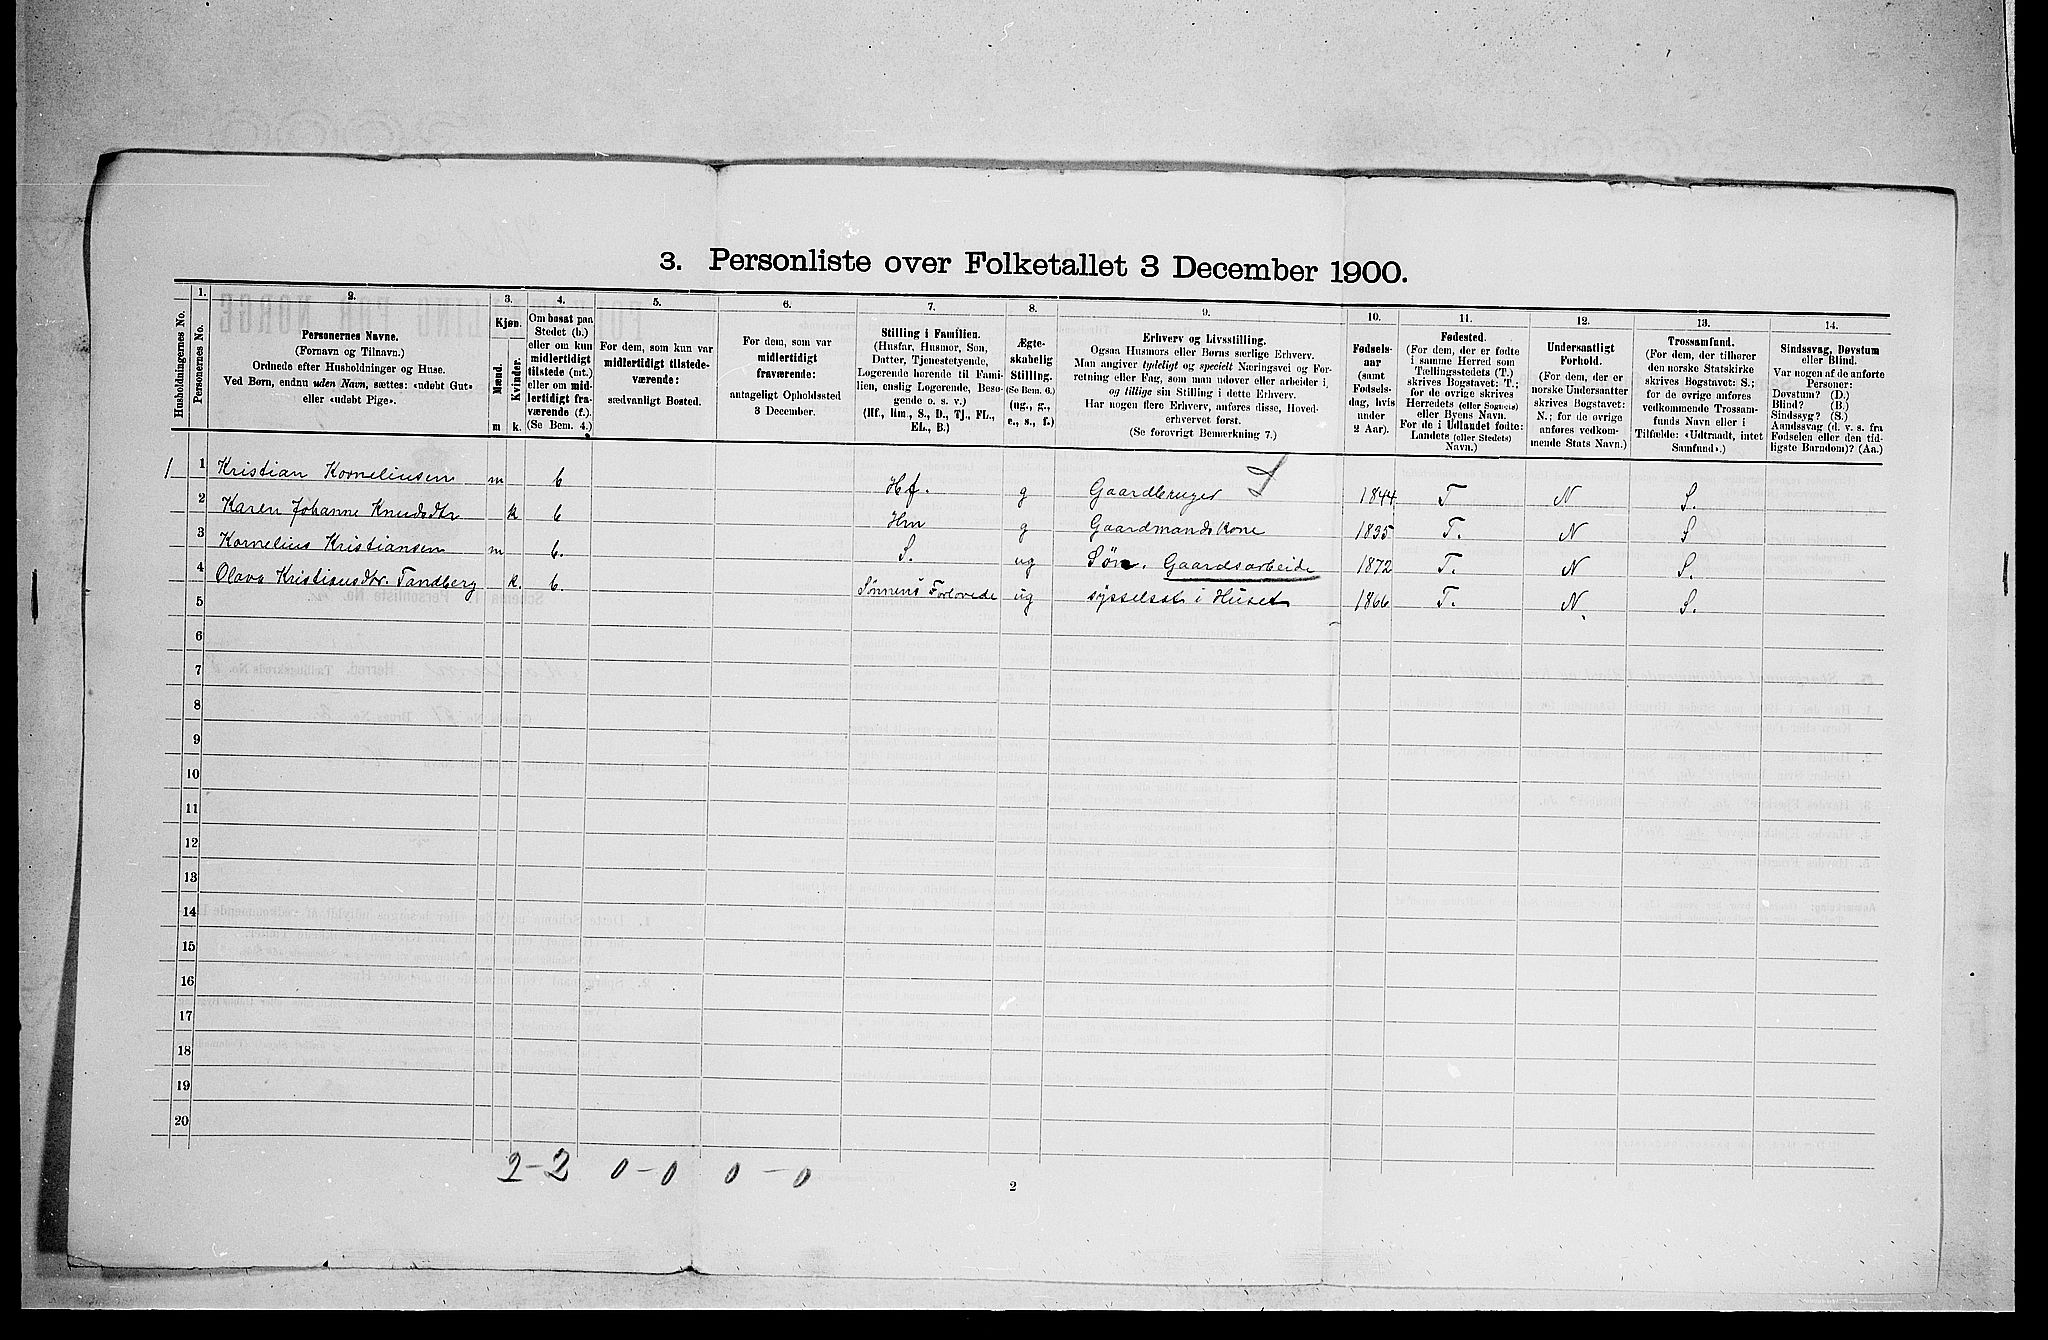 3. Personliste over Folketallet 3 December 1900.
Husholdningernes No.
1.
Personernes No.
2.
Personernes Navne.
(Fornavn og Tilnavn.)
Ordnede efter Husholdninger og Huse.
Ved Børn, endnu uden Navn, sættes: «udøbt Gut»
eller «udøbt Pige».
3.
Kjøn.
Mænd.
Kvinder.
m
k.
4.
Om bosat paa
Stedet (b.)
eller om kun
midlertidigt
tilstede (mt.)
eller om mid-
lertidigt fra-
værende (f.).
(Se Bem. 4.)
5.
For dem, som kun var
midlertidigt tilstede-
værende:
sædvanligt Bosted.
6.
For dem, som var
midlertidigt
fraværende:
antageligt Opholdssted
3 December.
7.
Stilling i Familien.
(Husfar, Husmor, Søn,
Datter, Tjenestetyende,
Logerende hørende til Fami-
lien, enslig Logerende, Besø-
gende o. s. v.)
(Hf., Hm., S., D., Tj., FL.,
EL., B.)
8.
Ægte-
skabelig
Stilling.
(Se Bem. 6.)
(ug., g.,
e., s., f.)
9.
Erhverv og Livsstilling.
Ogsaa Husmors eller Børns særlige Erhverv.
Man angiver tydeligt og specielt Næringsvei og For-
retning eller Fag, som man udøver eller arbeider i,
og tillige sin Stilling i dette Erhverv.
Har nogen flere Erhverv, anføres disse, Hoved-
erhvervet først.
(Se forøvrigt Bemærkning 7.)
10.
Fødsels-
aar
(samt
Fødsels-
dag, hvis
under
2 Aar).
11.
Fødested.
(For dem, der er fødte
i samme Herred som
Tællingsstedets (T.)
skrives Bogstavet: T.;
for de øvrige skrives
Herredets (eller Sognets)
eller Byens Navn.
For de i Udlandet fødte:
Landets (eller Stedets)
Navn.)
12.
Undersaatligt
Forhold.
(For dem, der er
norske Undersaatter
skrives Bogstavet:
N.; for de øvrige
anføres vedkom-
mende Stats Navn.)
13.
Trossamfund.
(For dem, der tilhører
den norske Statskirke
skrives Bogstavet: S.;
for de øvrige anføres
vedkommende Trossam-
funds Navn eller i
Tilfælde: «Udtraadt, intet
Samfund».)
14.
Sindssvag, Døvstum
eller Blind.
Var nogen af de anførte
Personer:
Døvstum? (D.)
Blind? (B.)
Sindssyg? (S.)
Aandssvag (d. v. s. fra
Fødselen eller den tid-
ligste Barndom)? (Aa.)
1 1 Kristian Korneliussen m b Hf. g Gaardbruger 1844 T N S.
2 Karen Johanne Knudsdtr k b Hm g Gaardmandskone 1835 T. N S
3 Kornelius Kristiansen m b. S. ug Søn. Gaardsarbeide 1872 T. N S.
4 Olava Kristiansdtr. Tandberg k. b. Sønnens Forlovede ug sysselsat i Huset 1866 T. N. S.
5
6
7
8
9
10
11
12
13
14
15
16
17
18
19
20
2-2 0-0 0-0
2